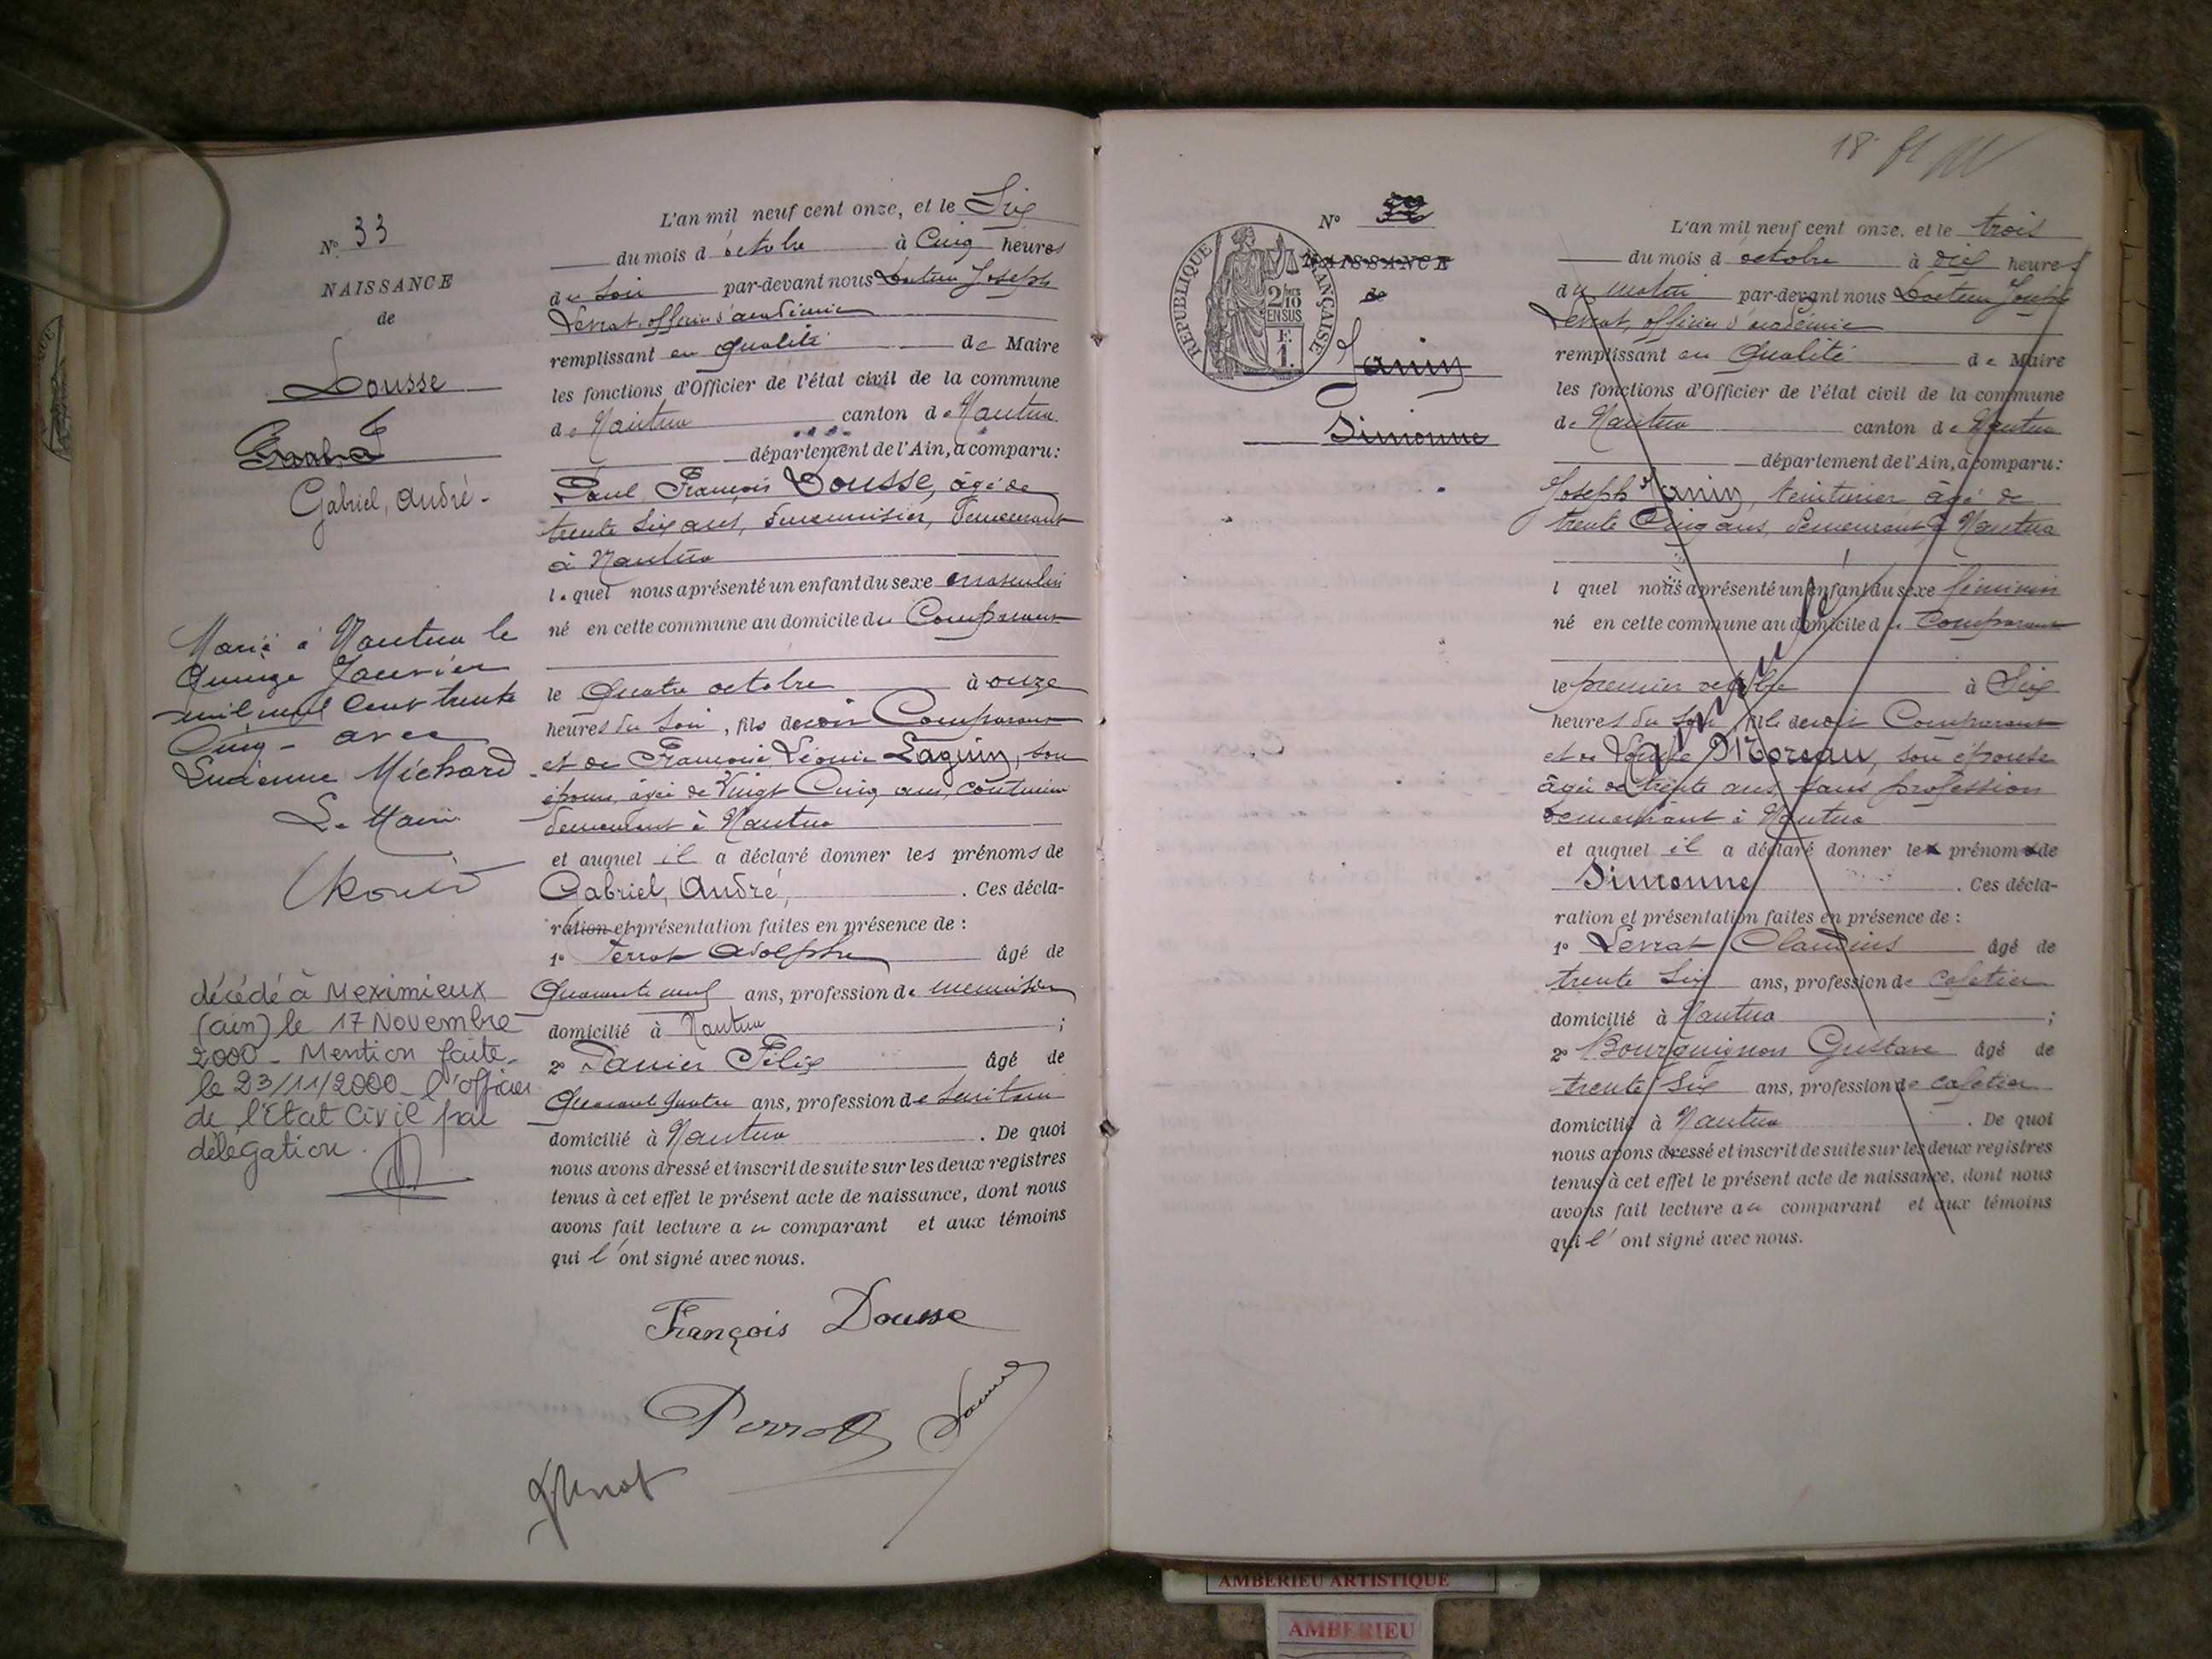 N° 33
NAISSANCE
de
Dousse
Gabriel, André -
Marié à Nantua le
Quinze Janvier
mil neuf Cent trente
Cinq - avec
Lucienne Michard
Le Maire
décédé à Meximieux
(ain) le 17 Novembre
2000 - Mention faite
le 23/11/2000 - l'officier
de l'Etat Civil par
délégation.
L'an mil neuf cent onze, et le Six
du mois d'octobre à Cinq heures
du Soir par-devant nous Docteur Joseph
Levrat, officier d'académie
remplissant en qualité de Maire
les fonctions d'Officier de l'état civil de la commune
de Nantua canton de Nantua
département de l'Ain, a comparu:
Paul François Dousse, âgé de
trente Six ans, menuisier, demeurant
à Nantua
lequel nous a présenté un enfant du sexe masculin
né en cette commune au domicile du Comparant
le Quatre octobre à onze
heures du Soir, fils de Comparant
et de Léonie Laguin, son
épouse, âgée de Vingt Cinq ans,
demeurant à Nantua
et auquel il a déclaré donner les prénoms de
Gabriel, André, . Ces décla-
ration et présentation faites en présence de :
1° Perrot Adolphe âgé de
Quarante neuf ans, profession de menuisier
domicilié à Nantua ;
2° Félix âgé de
Quarante Quatre ans, profession de
domicilié à Nantua . De quoi
nous avons dressé et inscrit de suite sur les deux registres
tenus à cet effet le présent acte de naissance, dont nous
avons fait lecture au comparant et aux témoins
qui l'ont signé avec nous.
François Dousse
Perrot
Levrat
18
N°
RÉPUBLIQUE FRANÇAISE
2/10
EN SUS
F.
1.
NAISSANCE
de
Janin
Simonne
L'an mil neuf cent onze, et le trois
du mois d'octobre à dix heures
du matin par-devant nous Docteur Joseph
Levrat, officier d'académie
remplissant en Qualité de Maire
les fonctions d'Officier de l'état civil de la commune
de Nantua canton de Nantua
département de l'Ain, a comparu:
Joseph Janin, teinturier âgé de
trente Cinq ans, demeurant à Nantua
l quel nous a présenté un enfant du sexe féminin
né en cette commune au domicile du Comparant
le premier octobre à Six
heures du Soir, fille de Comparant
et de Louise Moreau, son épouse
âgée de trente ans, sans profession
demeurant à Nantua
annulé
et auquel il a déclaré donner le prénom de
Simonne . Ces décla-
ration et présentation faites en présence de :
1° Levrat Claudius âgé de
trente Six ans, profession de cafetier
domicilié à Nantua ;
2° Bourguignon Gustave âgé de
trente Six ans, profession de cafetier
domicilié à Nantua . De quoi
nous avons dressé et inscrit de suite sur les deux registres
tenus à cet effet le présent acte de naissance, dont nous
avons fait lecture au comparant et aux témoins
qui l'ont signé avec nous.
AMBERIEU ARTISTIQUE
AMBERIEU